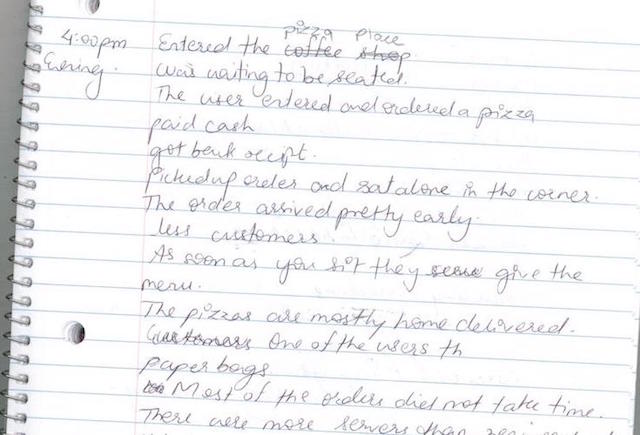 pizza place
4:00pm Entered the coffee shop
Evening. was waiting to be seated.
The user entered and ordered a pizza
paid cash
got back receipt.
Picked up order and sat alone in the corner.
The order arrived pretty early.
less customers.
As soon as you sit they serve give the
menu.
The pizzas are mostly home delivered.
Customers One of the users th
paper bags
Most of the orders did not take time.
There were more servers than